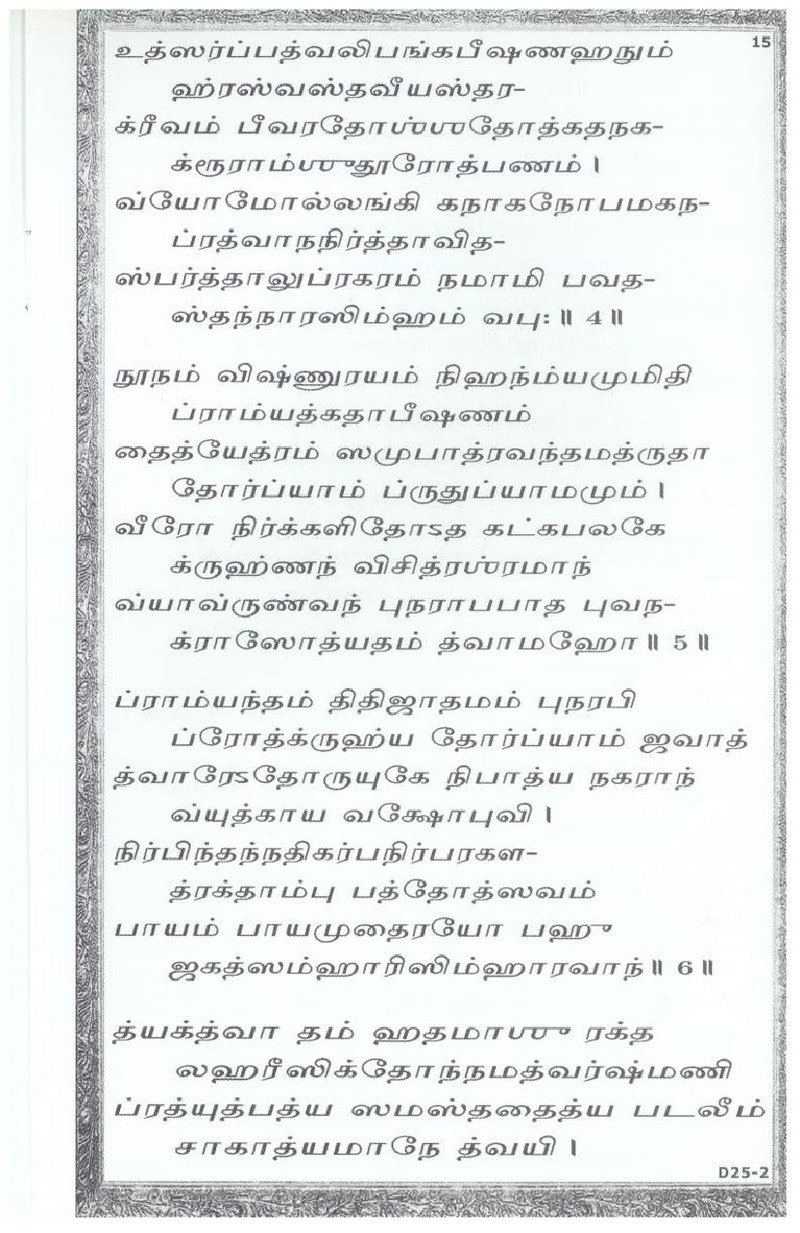 15
உத்ஸர்ப்பத்வலிபங்கபீஷணஹநும்
ஹ்ரஸ்வஸ்தவீயஸ்தர-
க்ரீவம் பீவரதோஶ்ஶதோத்கதநக-
க்ரூராம்ஶுதூரோத்பணம் ।
வ்யோமோல்லங்கி கநாகநோபமகந-
ப்ரத்வாநநிர்த்தாவித-
ஸ்பர்த்தாலுப்ரகரம் நமாமி பவத-
ஸ்தந்நாரஸிம்ஹம் வபு: ॥ 4 ॥
நூநம் விஷ்ணுரயம் நிஹந்ம்யமுமிதி
ப்ராம்யத்கதாபீஷணம்
தைத்யேத்ரம் ஸமுபாத்ரவந்தமத்ருதா
தோர்ப்யாம் ப்ருதுப்யாமமும் ।
வீரோ நிர்க்களிதோऽத கட்கபலகே
க்ருஹ்ணந் விசித்ரஶ்ரமாந்
வ்யாவ்ருண்வந் புநராபபாத புவந-
க்ராஸோத்யதம் த்வாமஹோ ॥ 5 ॥
ப்ராம்யந்தம் திதிஜாதமம் புநரபி
ப்ரோத்க்ருஹ்ய தோர்ப்யாம் ஜவாத்
த்வாரேऽதோருயுகே நிபாத்ய நகராந்
வ்யுத்காய வக்ஷோபுவி ।
நிர்பிந்தந்நதிகர்பநிர்பரகள-
த்ரக்தாம்பு பத்தோத்ஸவம்
பாயம் பாயமுதைரயோ பஹு
ஜகத்ஸம்ஹாரிஸிம்ஹாரவாந் ॥ 6 ॥
த்யக்த்வா தம் ஹதமாஶு ரக்த
லஹரீஸிக்தோந்நமத்வர்ஷ்மணி
ப்ரத்யுத்பத்ய ஸமஸ்ததைத்ய படலீம்
சாகாத்யமாநே த்வயி ।
D25-2